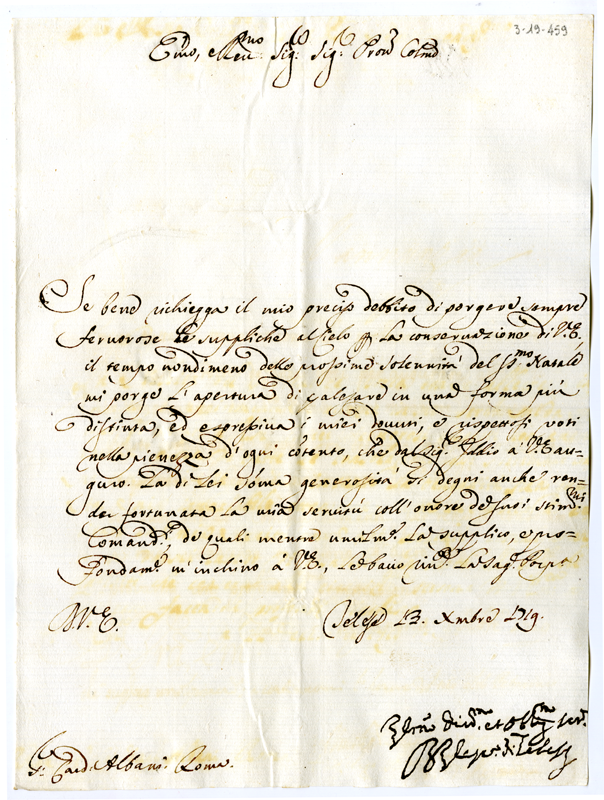 3-19-459
Emo, e Reu:mo Sig:r Sig:r Pron Colmo
Se bene richiegga il mio preciso debbito di porgere sempre
fervorose le suppliche al Cielo p la conservazione di V.E.
il tempo nondimeno delle prossime solennità del Ss:mo Natale
mi porge l'apertura di palesare in una forma più
distinta, ed espressiva i miei dovuti, e rispettosi voti
nella pienezza d'ogni cotento, che dal Sig:r Iddio à V.E. au-
guro. La di Lei soma generosità si degni anche ren-
der fortunata la mia servitù coll'onore de suoi stim:mi
Comandi, de quali mentre umilm:e La supplico, e pro-
fondam:e m'inchino à V.E., Le bacio la Sag:
D. V. E.
Telese 13. Xmbre 1719.
et Obblig:mo ser:
Telese
S:r Card: Albani Roma.